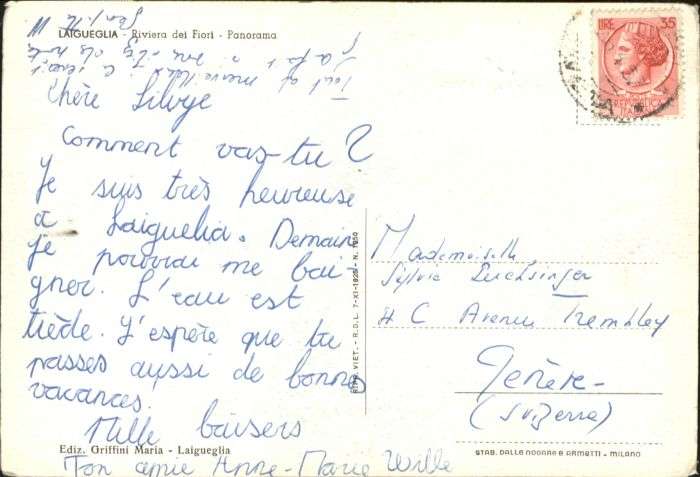 LAIGUEGLIA - Riviera dei Fiori - Panorama
Chère Silvye
Comment vas-tu ?
Je suis très heureuse
à Laiguelia. Demain
je pourrai me bai-
gner. L'eau est
tiède. J'espère que tu
passes aussi de bonnes
vacances.
Mille baisers
Ton amie Anne-Marie Wille
Ediz. Griffini Maria - Laigueglia
LIRE 35
REPUBBLICA
ITALIANA
Mademoiselle
Sylvia Leuchsinger
4 C Avenue Trembley
Genève-
(Svizzera)
R.D.L. 7-XI-1925 - N.
STAB. DALLE NOGARE E ARMETTI - MILANO